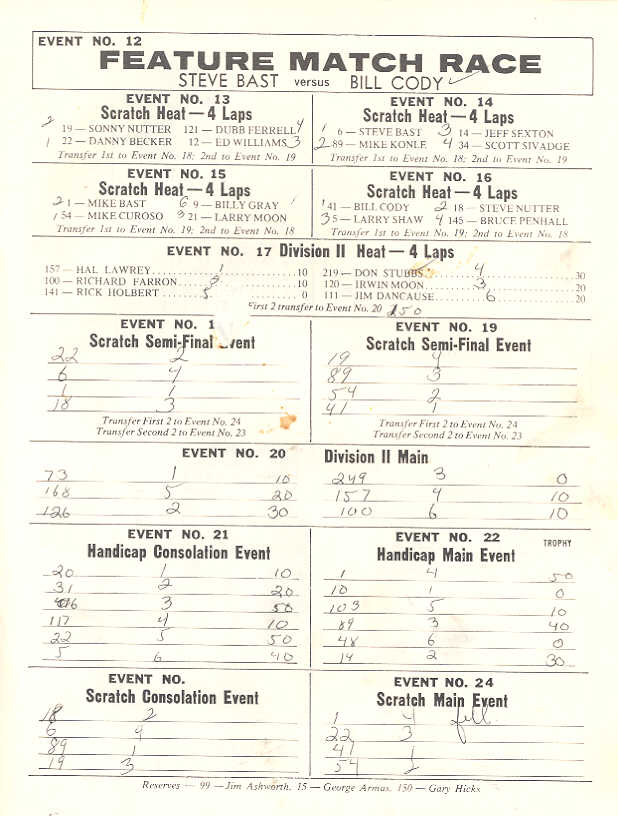 EVENT NO. 12
FEATURE MATCH RACE
STEVE BAST versus BILL CODY ✓
EVENT NO. 13
Scratch Heat—4 Laps
2 19 — SONNY NUTTER 121 — DUBB FERRELL 4
1 22 — DANNY BECKER 12 — ED WILLIAMS 3
Transfer 1st to Event No. 18; 2nd to Event No. 19
EVENT NO. 14
Scratch Heat—4 Laps
1 6 — STEVE BAST 3 14 — JEFF SEXTON
2 89 — MIKE KONLE 4 34 — SCOTT SIVADGE
Transfer 1st to Event No. 18; 2nd to Event No. 19
EVENT NO. 15
Scratch Heat—4 Laps
2 1 — MIKE BAST 6 9 — BILLY GRAY
1 54 — MIKE CUROSO 3 21 — LARRY MOON
Transfer 1st to Event No. 19; 2nd to Event No. 18
EVENT NO. 16
Scratch Heat—4 Laps
1 41 — BILL CODY 2 18 — STEVE NUTTER
3 5 — LARRY SHAW 4 145 — BRUCE PENHALL
Transfer 1st to Event No. 19; 2nd to Event No. 18
EVENT NO. 17 Division II Heat—4 Laps
157 — HAL LAWREY 1 10
100 — RICHARD FARRON 2 10
141 — RICK HOLBERT 5 0
219 — DON STUBBS 4 30
120 — IRWIN MOON 3 20
111 — JIM DANCAUSE 6 20
First 2 transfer to Event No. 20 150
EVENT NO. 1
Scratch Semi-Final Event
22 2
6 4
1 1
18 3
Transfer First 2 to Event No. 24
Transfer Second 2 to Event No. 23
EVENT NO. 19
Scratch Semi-Final Event
19 4
89 3
54 2
41 1
Transfer First 2 to Event No. 24
Transfer Second 2 to Event No. 23
EVENT NO. 20 Division II Main
73 1 10
168 5 20
126 2 30
249 3 0
157 4 10
100 6 10
EVENT NO. 21
Handicap Consolation Event
20 1 10
31 2 20
16 3 50
117 4 10
22 5 50
5 6 40
EVENT NO. 22 TROPHY
Handicap Main Event
1 4 50
10 1 0
103 5 10
89 3 40
48 6 0
14 2 30
EVENT NO.
Scratch Consolation Event
18 2
6 4
89 1
19 3
EVENT NO. 24
Scratch Main Event
1 4 fell
22 3
41 1
54 2
Reserves — 99 — Jim Ashworth, 15 — George Armas, 150 — Gary Hicks